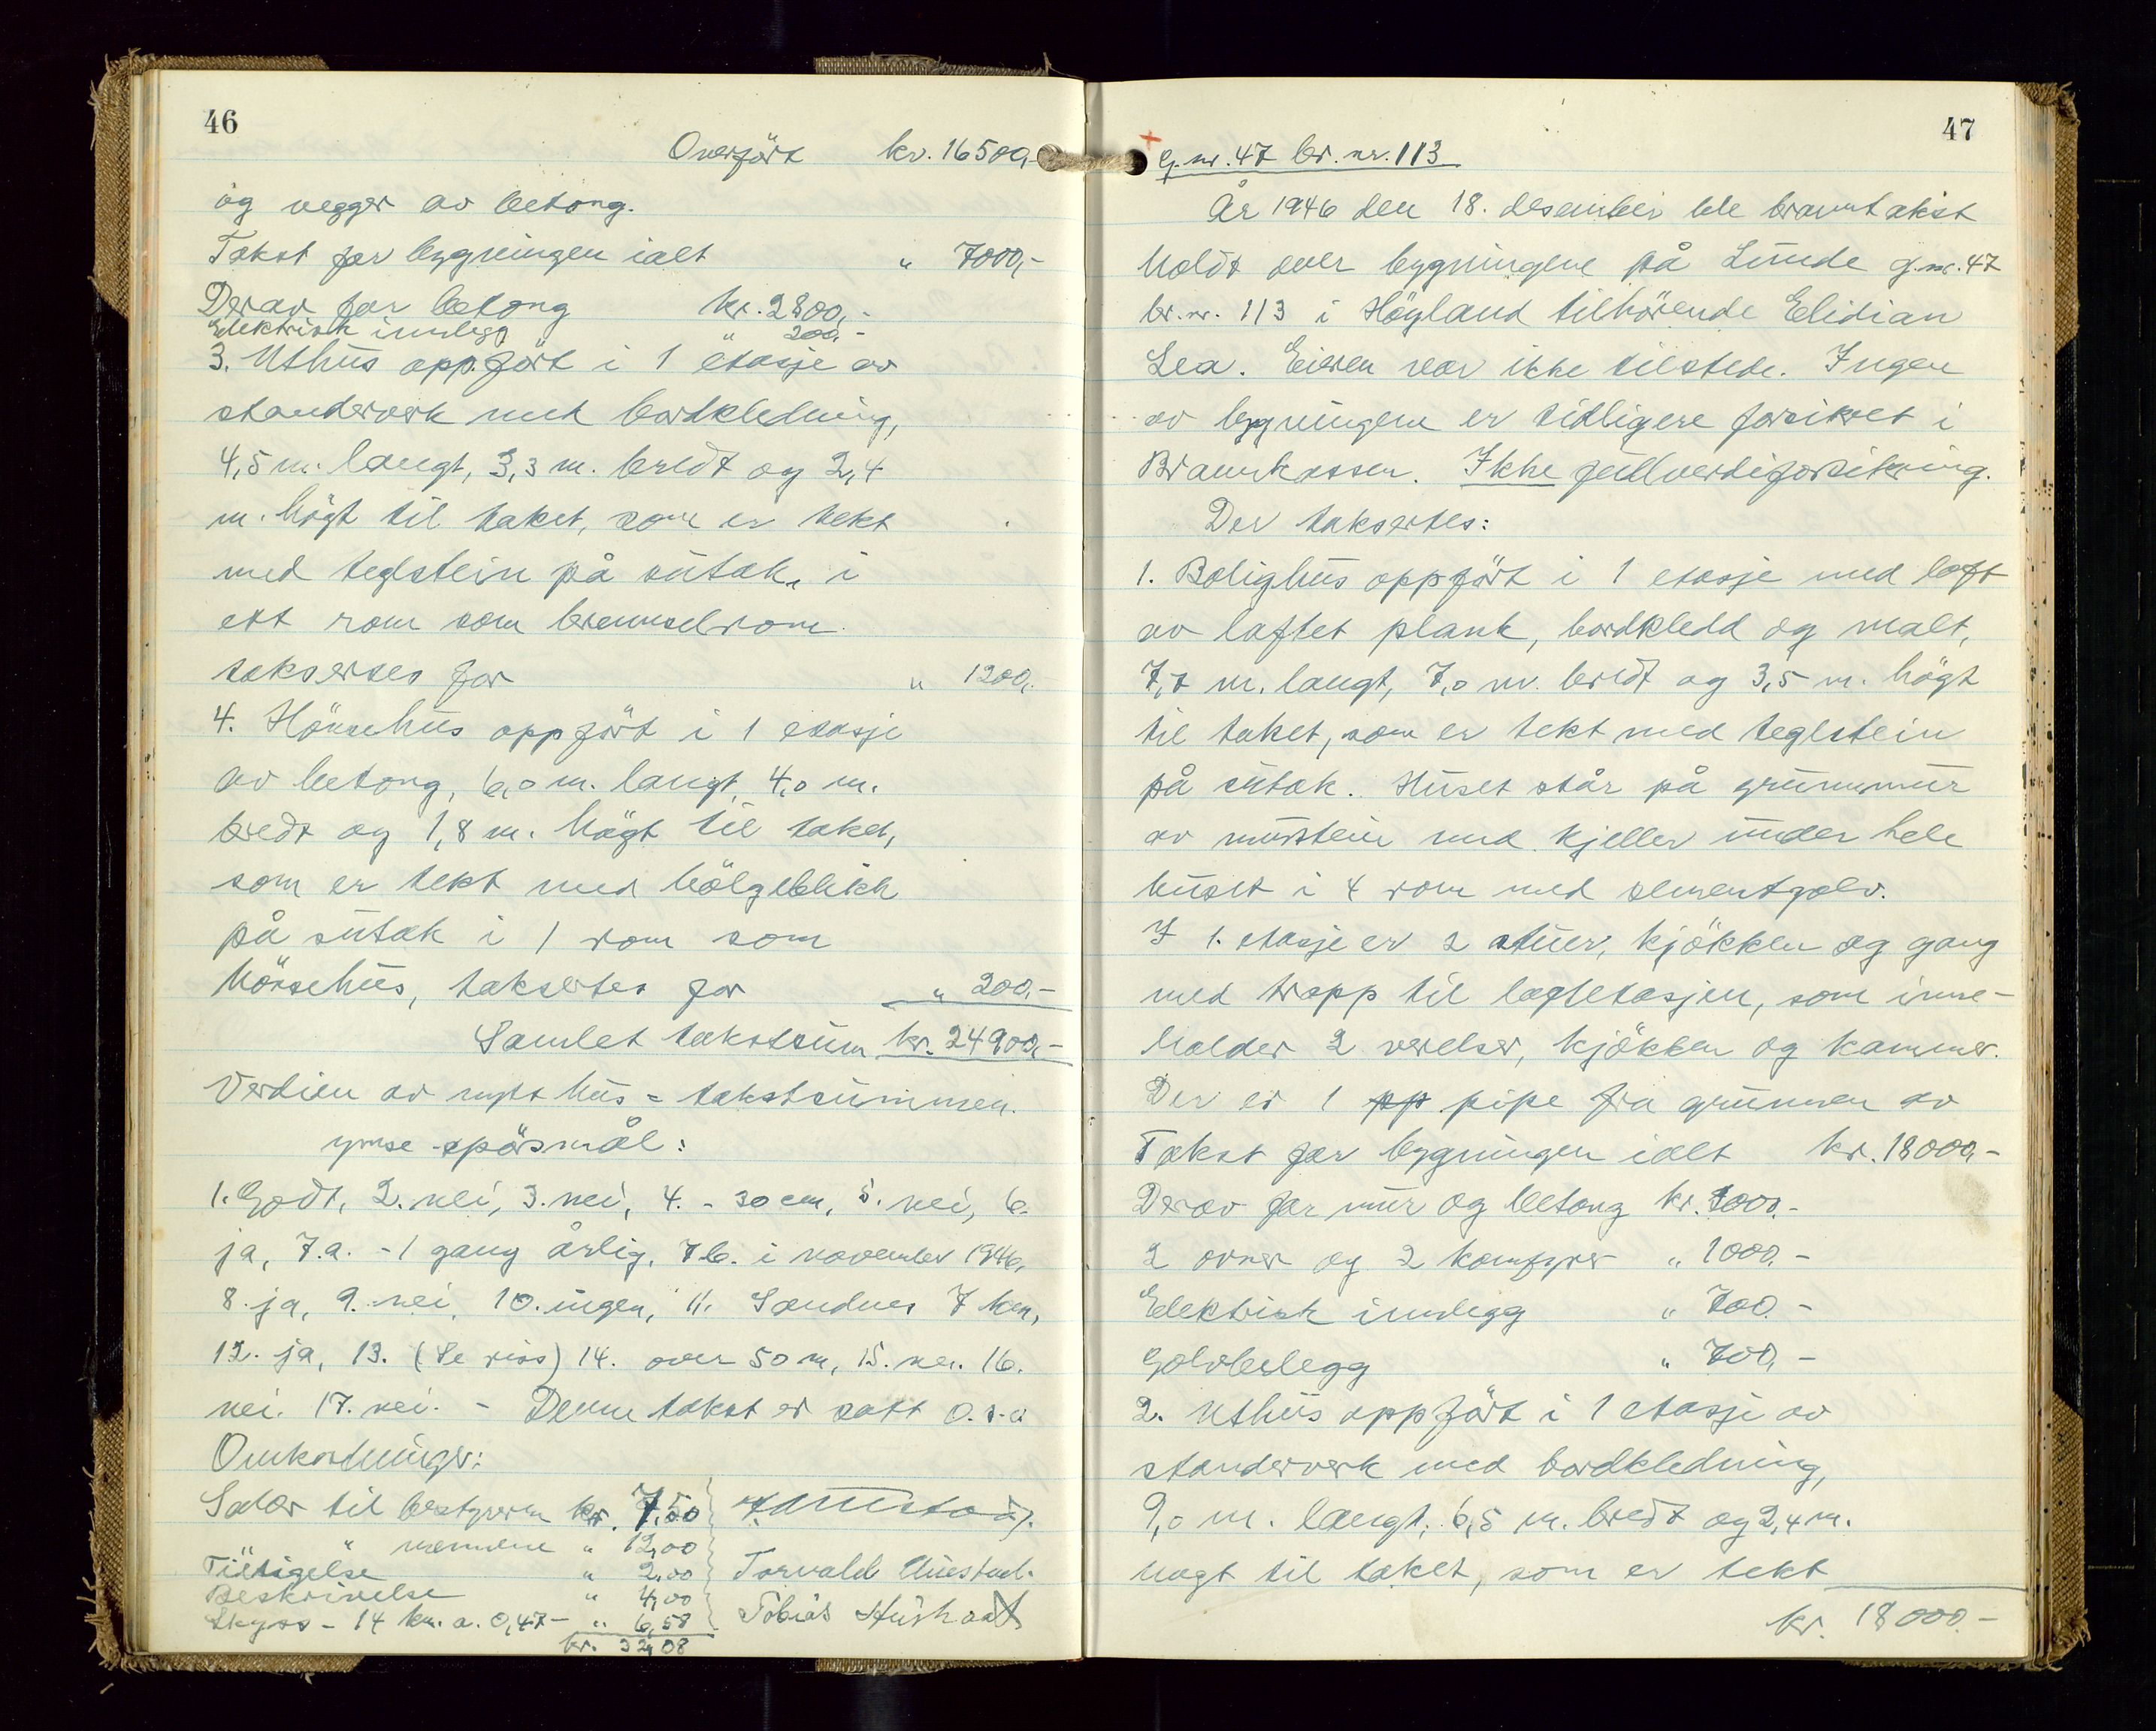 46
Overført kr. 16500,-
og vegger av betong.
Takst for bygningen ialt " 7000,-
Derav for betong kr. 2800,-
Elektrisk innlegg " 200,-
3. Uthus oppført i 1 etasje av
standerverk med bordkledning,
4,5 m. langt, 3,3 m. bredt og 2,4
m. høgt til taket, som er tekt
med teglstein på sutak, i
ett rom som brenselrom
takseres for " 1200,-
4. Hønsehus oppført i 1 etasje
av betong, 6,0 m. langt, 4,0 m.
bredt og 1,8 m. høgt til taket,
som er tekt med bølgeblikk
på sutak i 1 rom som
hønsehus, takseres for " 200,-
Samlet takstsum kr. 24900,-
Verdien av nytt hus = takstsummen.
ymse spørsmål:
1. Godt, 2. nei, 3. nei, 4. - 30 cm, 5. nei, 6.
ja, 7.a. - 1 gang årlig, 7b. i november 1946,
8. ja, 9. nei, 10. ingen, 11. Sandnes 7 km,
12. ja, 13. (Se riss) 14. over 50 m, 15. nei. 16.
nei. 17. nei. - Denne takst er satt o.s.v
Omkostninger:
Salær til bestyreren kr. 7,50
" mennene " 12,00
Tilsigelse " 2,00 Torvald Auestad.
Beskrivelse " 4,00
Skyss - 14 km. a. 0,47 - " 6,58 Tobias
kr. 32,08
47
G.nr. 47 br. nr. 113
År 1946 den 18. desember ble branntakst
holdt over bygningene på Lunde g.nr. 47
br.nr. 113 i Høyland tilhørende Elidian
Lea. Eieren var ikke tilstede. Ingen
av bygningene er tidligere forsikret i
Brannkassen. Ikke fullverdiforsikring.
Der taksertes:
1. Bolighus oppført i 1 etasje med loft
av laftet plank, bordkledd og malt,
7,7 m. langt, 7,0 m. bredt og 3,5 m. høgt
til taket, som er tekt med teglstein
på sutak. Huset står på grunnmur
av murstein med kjeller under hele
huset i 4 rom med sementgolv.
I 1. etasje er 2 stuer, kjøkken og gang
med trapp til loftetasjen, som inne-
holder 2 verelser, kjøkken og kammer.
Der er 1 pp pipe fra grunnen av
Takst for bygningen ialt kr. 18000,-
Derav for mur og betong kr. 7000,-
2 ovner og 2 komfyrer " 1000,-
Elektrisk innlegg " 700,-
Golvbelegg " 700,-
2. Uthus oppført i 1 etasje av
standerverk med bordkledning,
9,0 m. langt, 6,5 m. bredt og 2,4 m.
høgt til taket, som er tekt
kr. 18000,-